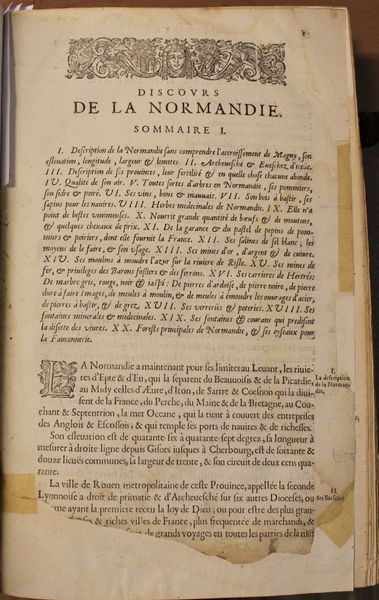 DISCOVRS
DE LA NORMANDIE.
SOMMAIRE I.
I. Description de la Normandie sans comprendre l'accroissement de Magny, son
esleuation, longitude, largeur & limites. II. Archeuesché & Eueschez d'icelle.
III. Description de ses prouinces, leur fertilité & en quelle chose chacune abonde.
IV. Qualité de son air. V. Toutes sortes d'arbres en Normandie, ses pommiers,
son sidre & poiré. VI. Ses vins, bons & mauuais. VII. Son bois à bastir, ses
sapins pour les nauires. VIII. Herbes medecinales de Normandie. IX. Elle n'a
point de bestes venimeuses. X. Nourrit grande quantité de bœufs & de moutons,
& quelques cheuaux de prix. XI. De la garance & du pastel de pepins de pom-
miers & poiriers, dont elle fournit la France. XII. Ses salines de sel blanc, les
moyens de le faire, & son vsage. XIII. Ses mines d'or, d'argent & de cuiure.
XIV. Ses moulins à moudre l'azur sur la riuiere de Risle. XV. Ses mines de
fer, & priuileges des Barons fossiers & des ferons. XVI. Ses carrieres de Hertrés:
De marbre gris, rouge, noir & iaspé: De pierres d'ardoise, de pierre noire, de pierre
dure à faire images, de meules à moulin, & de meules à émoudre les ouurages d'acier,
de pierres à bastir, & de grez. XVII. Ses verreries & poteries. XVIII. Ses
fontaines minerales & medecinales. XIX. Ses fontaines & courans qui predisent
la disette des viures. XX. Forests principales de Normandie, & ses oyseaux pour
la Fauconnerie.
LA Normandie a maintenant pour ses limites au Leuant, les riuie-
res d'Epte & d'Eu, qui la separent du Beauuoisis & de la Picardie,
au Midy celles d'Æure, d'Iton, de Sartre & Coesnon qui la diui-
sent de la France, du Perche, du Maine & de la Bretagne, au Cou-
chant & Septentrion, la mer Oceane, qui la tient à couuert des entreprises
des Anglois & Escossois, & qui remple ses ports de nauires & de richesses.
I.
La description
de la Norman-
die.
Son esleuation est de quarante-six à quarante-sept degrez, sa longueur à
mesurer à droite ligne depuis Gisors iusques à Cherbourg, est de soixante &
douze lieuës communes, sa largeur de trente, & son circuit de deux cens qua-
rante.
La ville de Rouen metropolitaine de ceste Prouince, appellée la seconde
Lyonnoise a droit de primatie & d'Archeuesché sur six autres Dioceses, ou
me ayant la premiere receu la loy de Dieu, ou pour estre des plus gran-
& riches villes de France, plus frequentee de marchands, &
de grands voyages en toutes les parties de la mer
II.